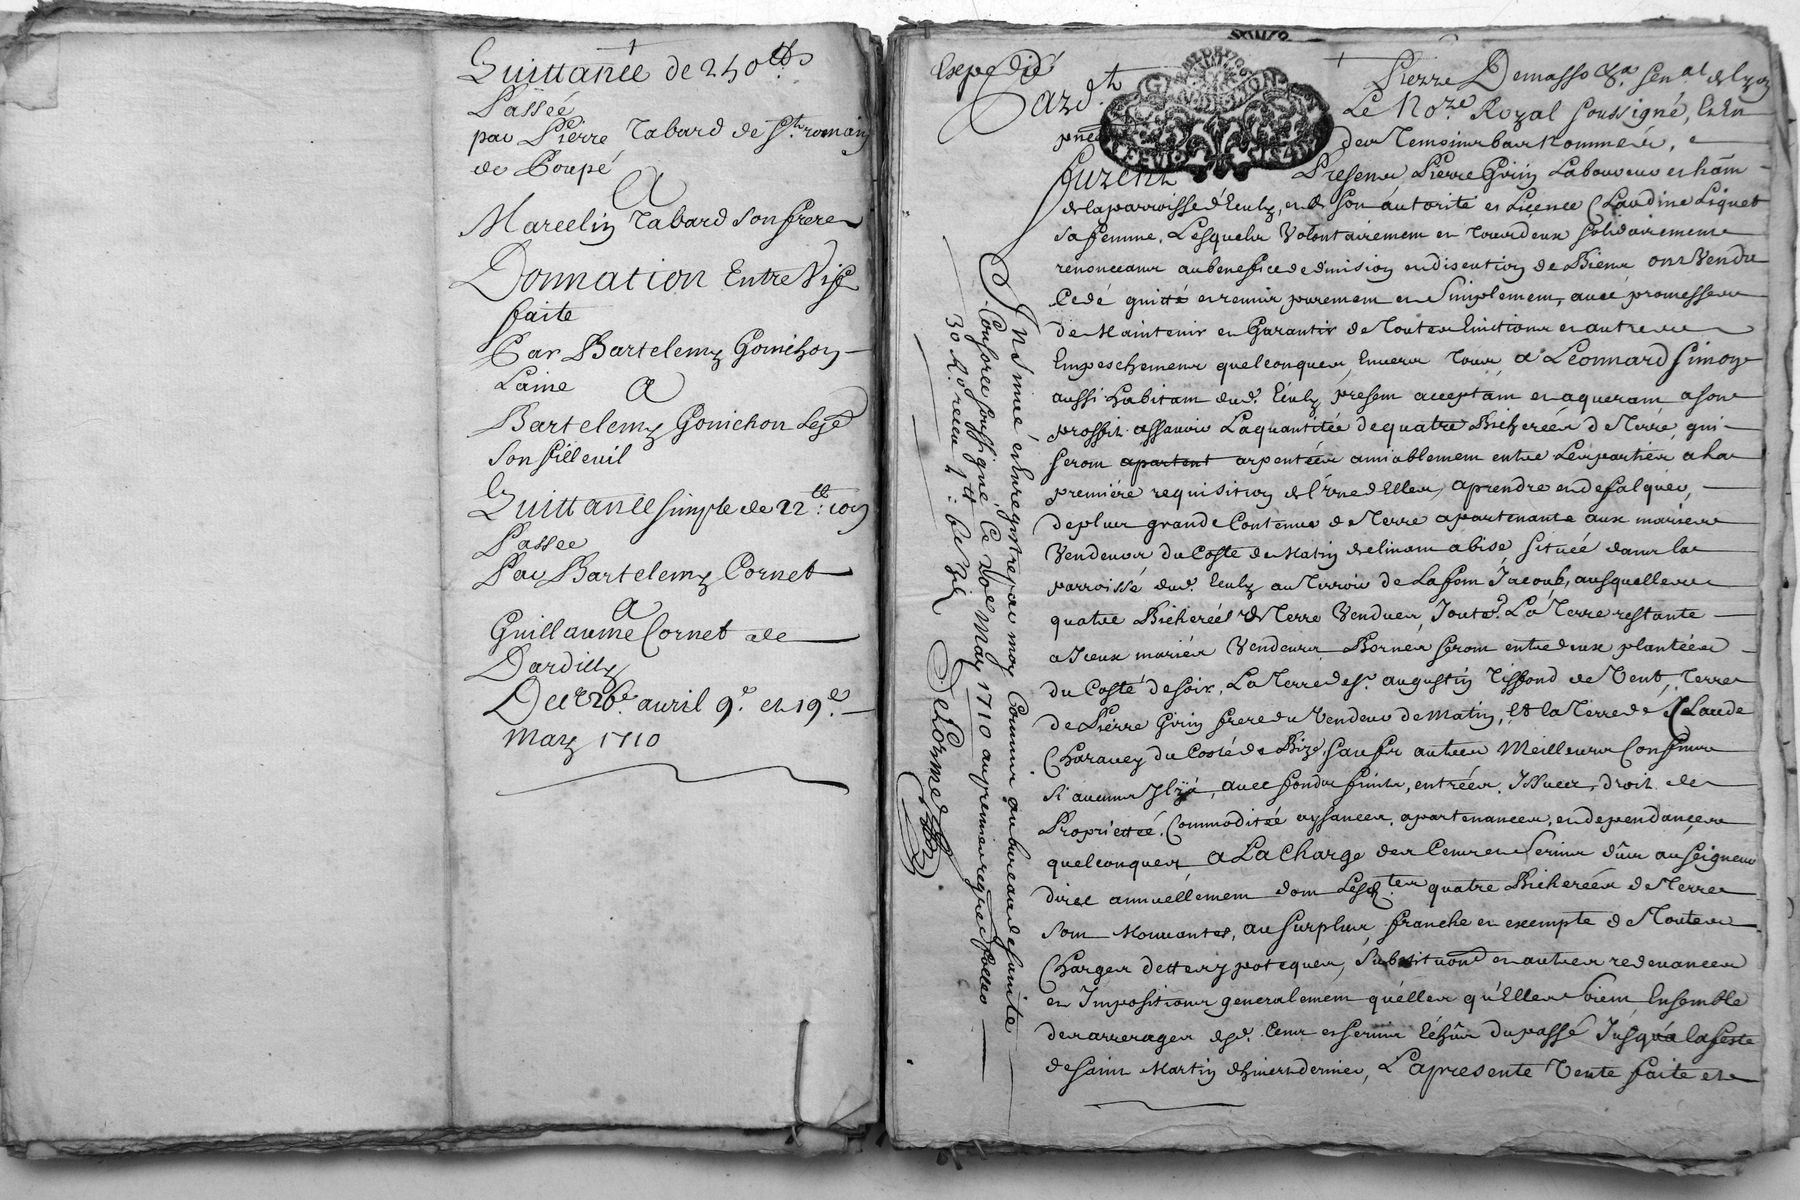 Quittance de 240ᵗᵗ
Passée
par Pierre Tabard de Sᵗ romain
de Poupé
A
Marcelin Tabard son frere
Donnation Entre Vifz
faite
Par Bartelemy Gonichon
Laine
A
Bartelemy Gonichon Lejᵉ
son filleuil
Quittance simple de 22ᵗᵗ 10ˢ
Passee
Par Bartelemy Cornet
A
Guillaume Cornet de
Dardilly
Des 26ᵉ avril 9ᵉ et 19ᵉ
May 1710
Expedié
Pardᵗ
Pierre Demasso Senᵃˡ de Lyon
Le Noʳᵉ Royal soussigné, Et En
des Temoins bas Nommés,
furent Presens Pierre Girin Laboureur et habitᵗ
de la parroisse d'Eculy, et de son autorité et Licence Claudine Liquet
sa femme, Lesquels Volontairemen et tous deux solidairement
renonceans au benefice de division et discution de Biens ont Vendu
Cedé quitté et remis purement et Simplement, avec promesses
de Maintenir et Garantir de Toutes Evictions et autres
Empeschemens quelconques, Envers Tous, a Leonnard Simon
aussi habitant dudᵗ Eculy, present acceptant et aquerant a son
proffit assavoir La quantitée de quatre Bicherées de Terre, qui
seront apartent arpentées amiablement entre Les parties a la
premiére requisition de l'Une d'Elles, a prendre et defalquer,
de plus grande Contenue de Terre apartenante aux mariés
Vendeurs du Costé de Matin declinant a bise Située dans la
parroisse dudᵗ Eculy au Terroir de Lafont Jacoub, ausquelles
quatre Bicherées de Terre Vendues, Joute La Terre restante
a Iceux mariés Vendeurs Bornes seront entredeux plantées
du Costé de soir, La Terre de Sʳ augustin Tissond de Vent, Terre
de Pierre Girin frere du Vendeur de Matin, Et la Terre de Claude
Charavey du Costé de Bize sauf les autres Meilleurs Confins
si aucuns Il y a, avec fonds fruits, entrées, Issues, droit de
Proprietteé, Commoditée aysances, apartenances, et dependances
quelconques A La Charge des Cens et Servis dûes au Seigneur
direc annuellement dont Lesdᵗᵉˢ quatre Bicherées de Terre
sont Mouvantes, au surplus, franche et exempte de Toutes
Charges dettes ypoteques, Substitutions et autres redevances
et Impositions generalement quélles qu'Elles soient Ensemble
des arrerages desdᵗ Cens et Servis Echûs du passé Jusqu'a la feste
de saint Martin d'hiver dernier, La presente Vente faite et
Insinué et Enregistré par moy Commis au bureau de sainte
Consorce soussigné, Ce May 1710 au premier registre folio
30 Rᵒ receu
Delorme